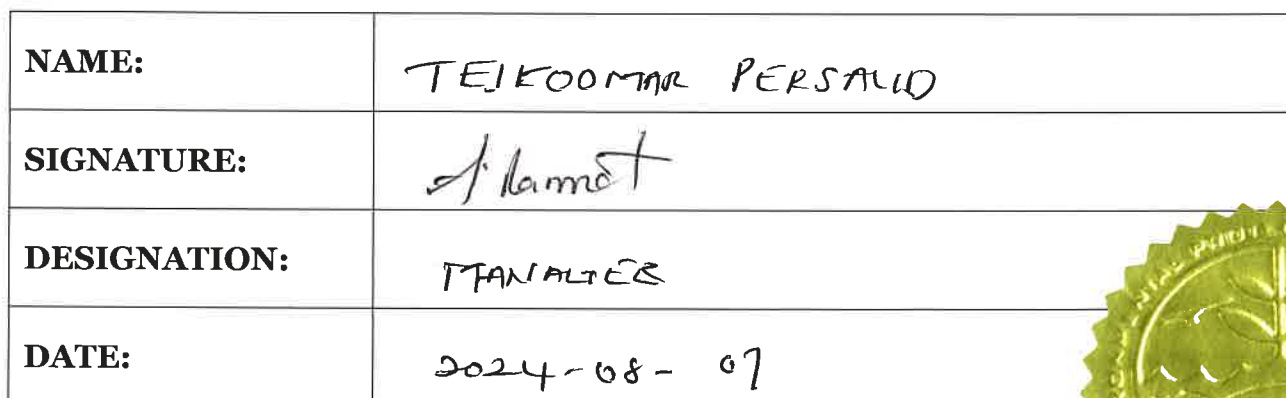 NAME: TEJKOOMAR PERSAUD
SIGNATURE:
DESIGNATION: MANAGER
DATE: 2024-08-07